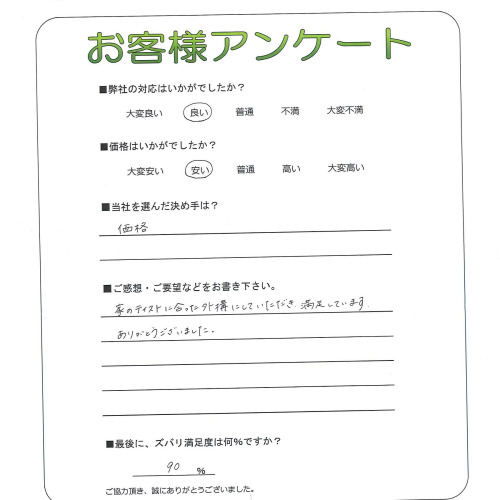 お客様アンケート
■弊社の対応はいかがでしたか？
大変良い 良い 普通 不満 大変不満
■価格はいかがでしたか？
大変安い 安い 普通 高い 大変高い
■当社を選んだ決め手は？
価格
■ご感想・ご要望などをお書き下さい。
家のテイストに合った外構にしていただき、満足しています。
ありがとうございました。
■最後に、ズバリ満足度は何%ですか？
90 %
ご協力頂き、誠にありがとうございました。